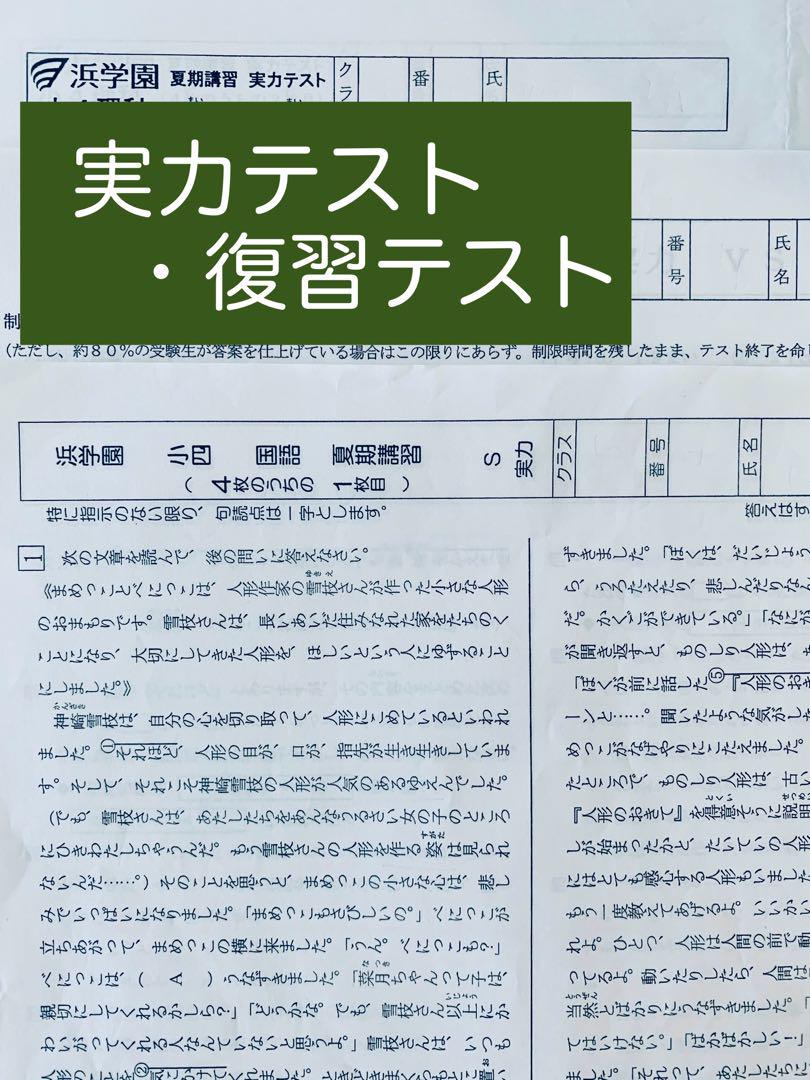 浜学園 夏期講習 実力テスト
クラ
番
氏
実力テスト
・復習テスト
番号
氏名
制
(ただし、約80%の受験生が答案を仕上げている場合はこの限りにあらず。制限時間を残したまま、テスト終了を命
浜学園 小四 国語 夏期講習 S 実力
(4枚のうちの 1枚目)
クラス
番号
氏名
特に指示のない限り、句読点は一字とします。
答えはす
1 次の文章を読んで、後の問いに答えなさい。
《まめっことべにっこは、人形作家の雪枝さんが作った小さな人形
のおまもりです。雪枝さんは、長いあいだ住みなれた家をたちのく
ことになり、大切にしてきた人形を、ほしいという人にゆずること
にしました。》
神崎雪枝は、自分の心を切り取って、人形にこめているといわれ
ました。①それほど、人形の目が、口が、指先が生き生きしていま
す。そして、それこそ神崎雪枝の人形が人気のあるゆえんでした。
(でも、雪枝さんは、あたしたちをあんなうるさい女の子のところ
にひきわたしちゃうんだ。もう雪枝さんの人形を作る姿は見られ
ないんだ……。)そのことを思うと、まめっこの小さな心は、悲し
みでいっぱいになりました。「まめっこもさびしいの。」べにっこが
立ちあがって、まめっこの横に来ました。「うん。べにっこも?」
べにっこは、( A )うなずきました。「菜月ちゃんって子は、
親切にしてくれるかしら?」「どうかな。でも、雪枝さん以上にか
わいがってくれる人なんていないと思うよ。」雪枝さんは、いつも
人形のことを②気にかけてくれました。ときどきまくつもとに置い
ずきました。「ぼくは、だいじょう
ら、うろたえたり、悲しんだりなん
だ。かくごができている。」「なにが
が聞き返すと、ものしり人形は、
「ぼくが前に話した⑤『人形のおき
ーンと……。聞いたような気がし
めっこがなげやりにこたえました。
たところで、ものしり人形は、古い
『人形のおきて』を得意そうに説明
しが始まったかと、たいていの人形
にはとても感心する人形もいました
もう一度教えてあげるよ。いいかい
れよ。ひとつ、人形は人間の前で動
ってるよ。動いたりしたら、人間は
当然とばかりにうなずきました。「
てはいけない。」「ばかばかしい!」
ました。「それって、あたしたちに